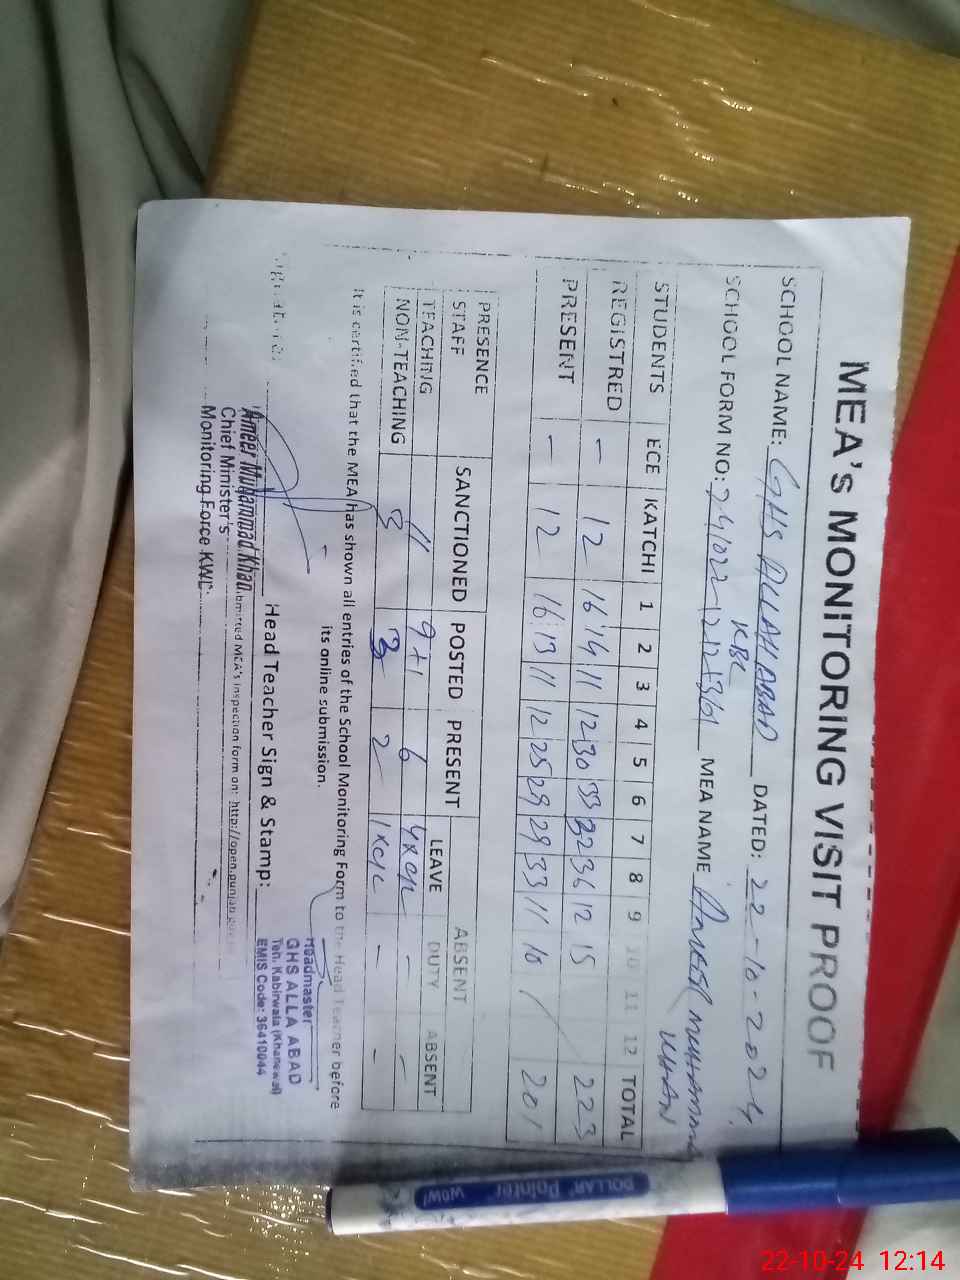 MEA's MONITORING VISIT PROOF
SCHOOL NAME: GHS ALLAHABAD DATED: 22-10-2024
KBL
SCHOOL FORM NO: MEA NAME AMEER MUHAMMAD
KHAN
STUDENTS ECE KATCHI 1 2 3 4 5 6 7 8 9 10 11 12 TOTAL
REGISTRED - 12 16 14 11 12 30 33 32 36 12 15 223
PRESENT - 12 16 13 11 12 25 29 29 33 11 10 201
PRESENCE SANCTIONED POSTED PRESENT ABSENT
STAFF LEAVE DUTY ABSENT
TEACHING 11 9+1 6 - -
NON-TEACHING 3 2 - -
It is certified that the MEA has shown all entries of the School Monitoring Form to the Head Teacher before
its online submission.
Head Teacher Sign & Stamp:
Headmaster
GHS ALLA ABAD
Teh. Kabirwala (Khanewal)
EMIS Code: 36410044
Ameer Muhammad Khan
MEA's inspection form on: http://open.punjab.gov
Chief Minister's
Monitoring Force KWL
DOLLAR Pointer WOW!
22-10-24 12:14